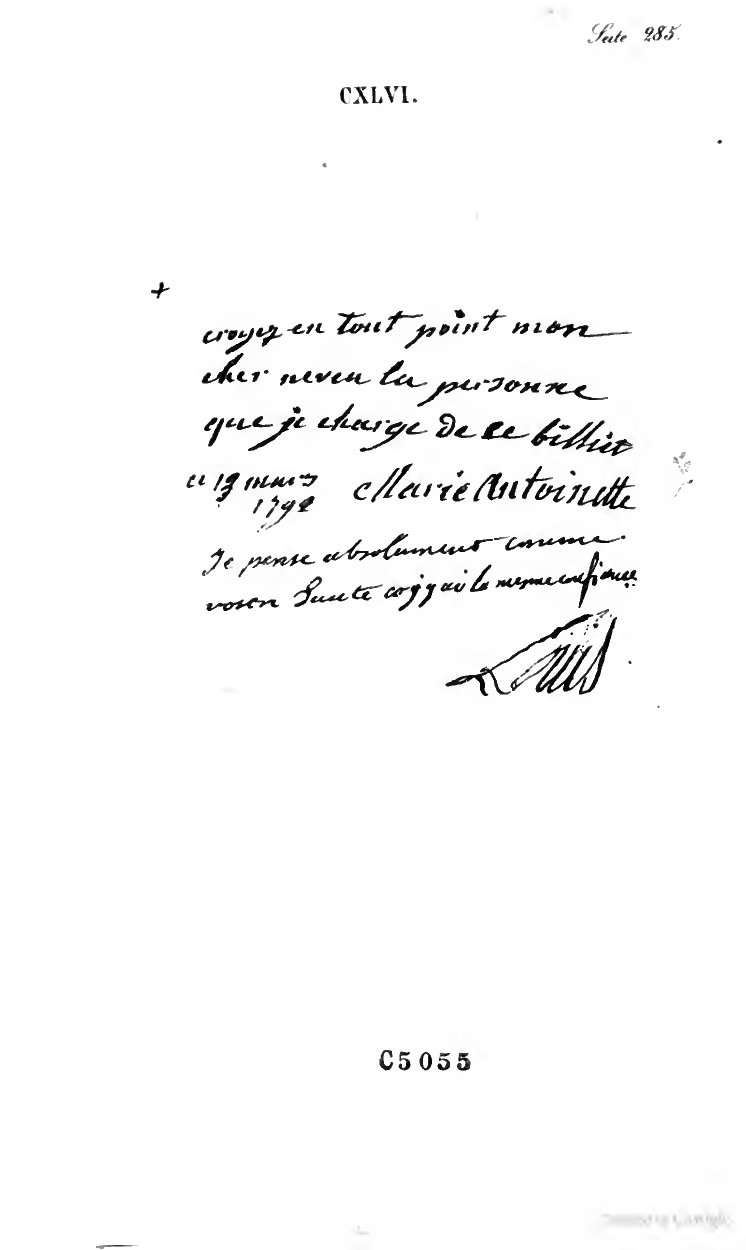 Seite 285.
CXLVI.
+
croyez en tout point mon
cher neveu la personne
que je charge de ce billiet
ce mars
1792 Marie Antoinette
Je pense absolument comme
votre Tante et j'y ai la mesme confiance
Louis
C5055